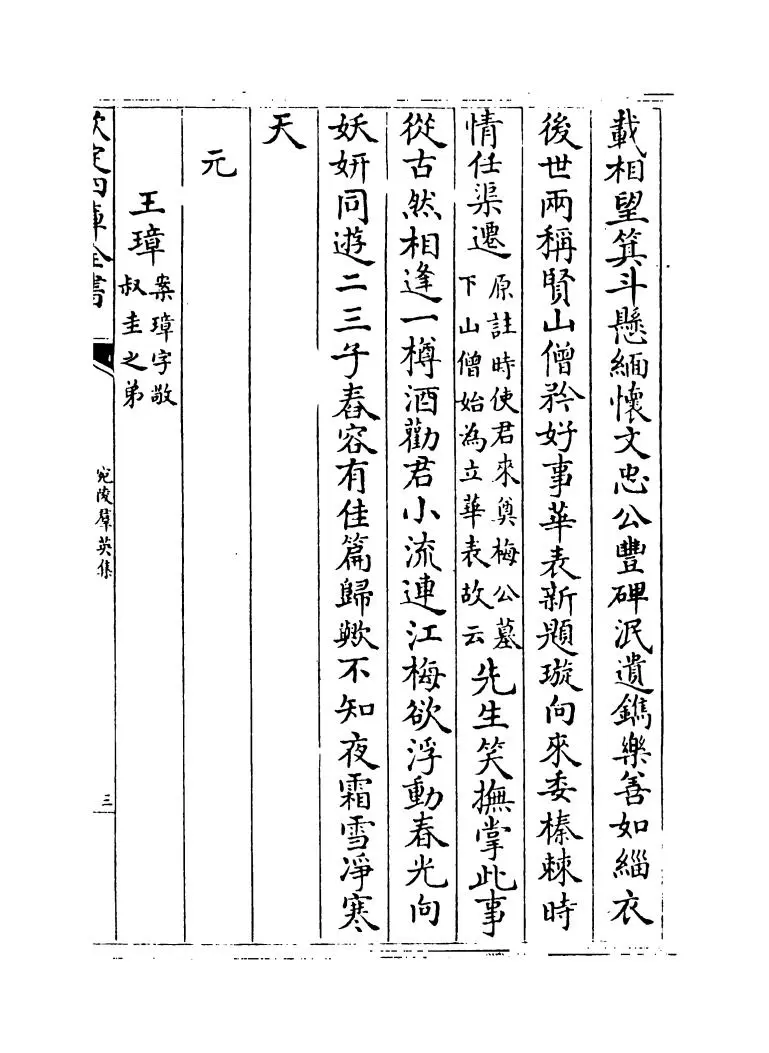 載相望箕斗懸緬懷文忠公豐碑泯遺鐫樂善如緇衣
後世兩稱賢山僧矜好事華表新題璇向來委榛棘時
情任渠遷原註時使君來奠梅公墓下山僧始為立華表故云先生笑撫掌此事
從古然相逢一樽酒勸君小流連江梅欲浮動春光向
妖妍同遊二三子舂容有佳篇歸歟不知夜霜雪凈寒
天
元
王璋案璋字敬叔圭之弟
欽定四庫全書
宛陵羣英集
三